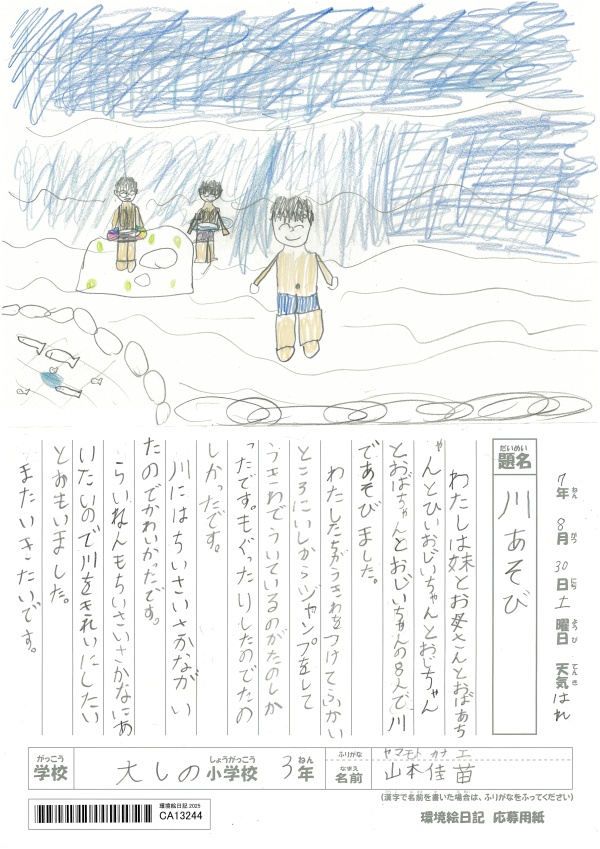 7年 8月 30日 土曜日 天気 はれ
題名 川あそび
わたしは妹とお母さんとおばあち
ゃんとひいおじいちゃんとおじちゃん
とおばちゃんとおじいちゃんの8人で川
であそびました。
わたしたちがうきわをつけてふかい
ところにいしからジャンプをして
うきわでういているのがたのしか
ったです。もぐったりしたのでたの
しかったです。
川にはちいさいさかながい
たのでかわいかったです。
らいねんもちいさいさかなにあ
いたいので川をきれいにしたい
とおもいました。
またいきたいです。
がっこう しょうがっこう ねん ふりがな ヤマモト カナエ
学校 大しの小学校 3年 なまえ 名前 山本佳苗
(漢字で名前を書いた場合は、ふりがなをふってください)
環境絵日記 2025
CA13244
環境絵日記 応募用紙